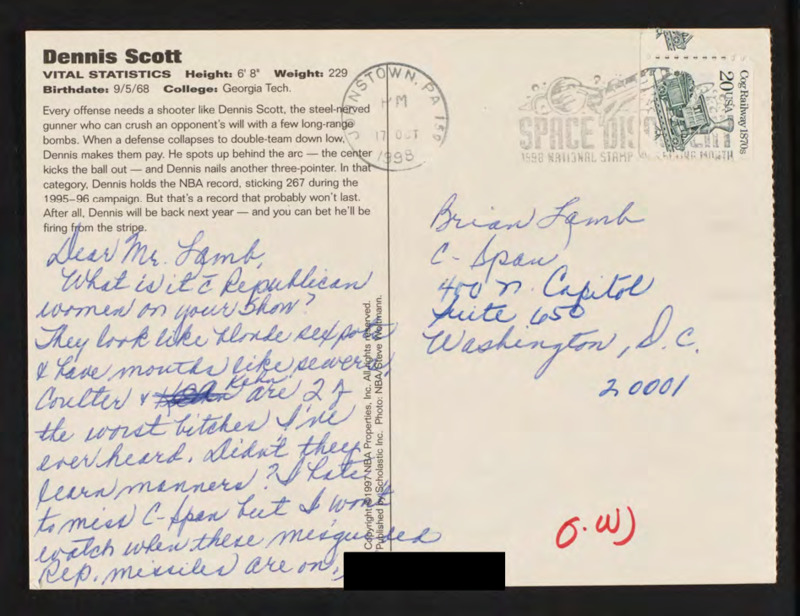 Dennis Scott
VITAL STATISTICS Height: 6' 8" Weight: 229
Birthdate: 9/5/68 College: Georgia Tech.
Every offense needs a shooter like Dennis Scott, the steel-nerved
gunner who can crush an opponent's will with a few long-range
bombs. When a defense collapses to double-team down low,
Dennis makes them pay. He spots up behind the arc — the center
kicks the ball out — and Dennis nails another three-pointer. In that
category, Dennis holds the NBA record, sticking 267 during the
1995–96 campaign. But that's a record that probably won't last.
After all, Dennis will be back next year — and you can bet he'll be
firing from the stripe.
Dear Mr. Lamb,
What is it c̄ Republican
women on your show?
They look like blonde sex
& have mouths like sewers,
Coulter & are 2 of
the worst bitches I've
ever heard. Didn't they
learn manners? I hate
to miss C-Span but I won't
watch when these misguided
Rep. missiles are on.
Copyright ©1997 NBA Properties, Inc. All rights reserved.
Published by Scholastic Inc. Photo: NBA/Steve
JOHNSTOWN, PA 159
PM
17 OCT
1998
SPACE
1998 NATIONAL STAMP MONTH
Cog Railway 1870s
20 USA
Brian Lamb
C-Span
400 N. Capitol
Suite 650
Washington, D.C.
20001